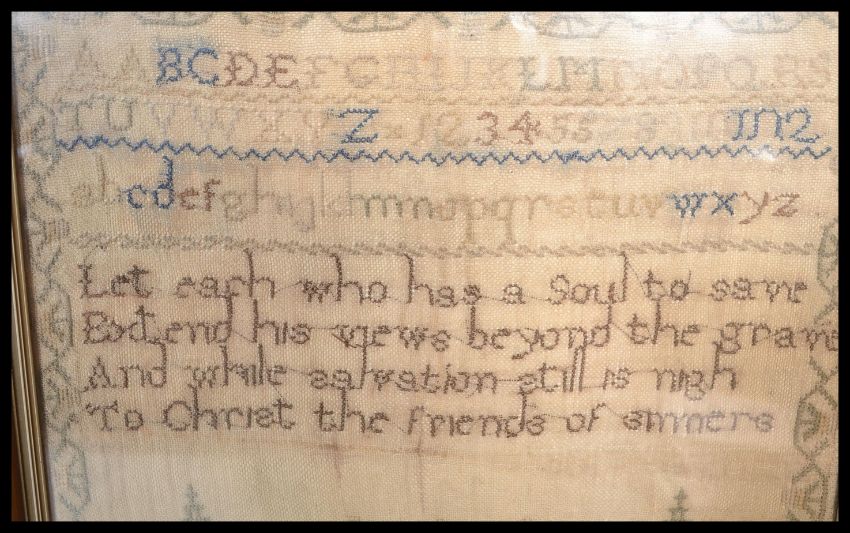 AABCDEFGHIJKLMNOPQRS
TUVWXYZ 12345
abcdefghijklmnopqrstuvwxyz
Let each who has a Soul to save
Extend his views beyond the grave
And while salvation still is nigh
To Christ the friends of sinners